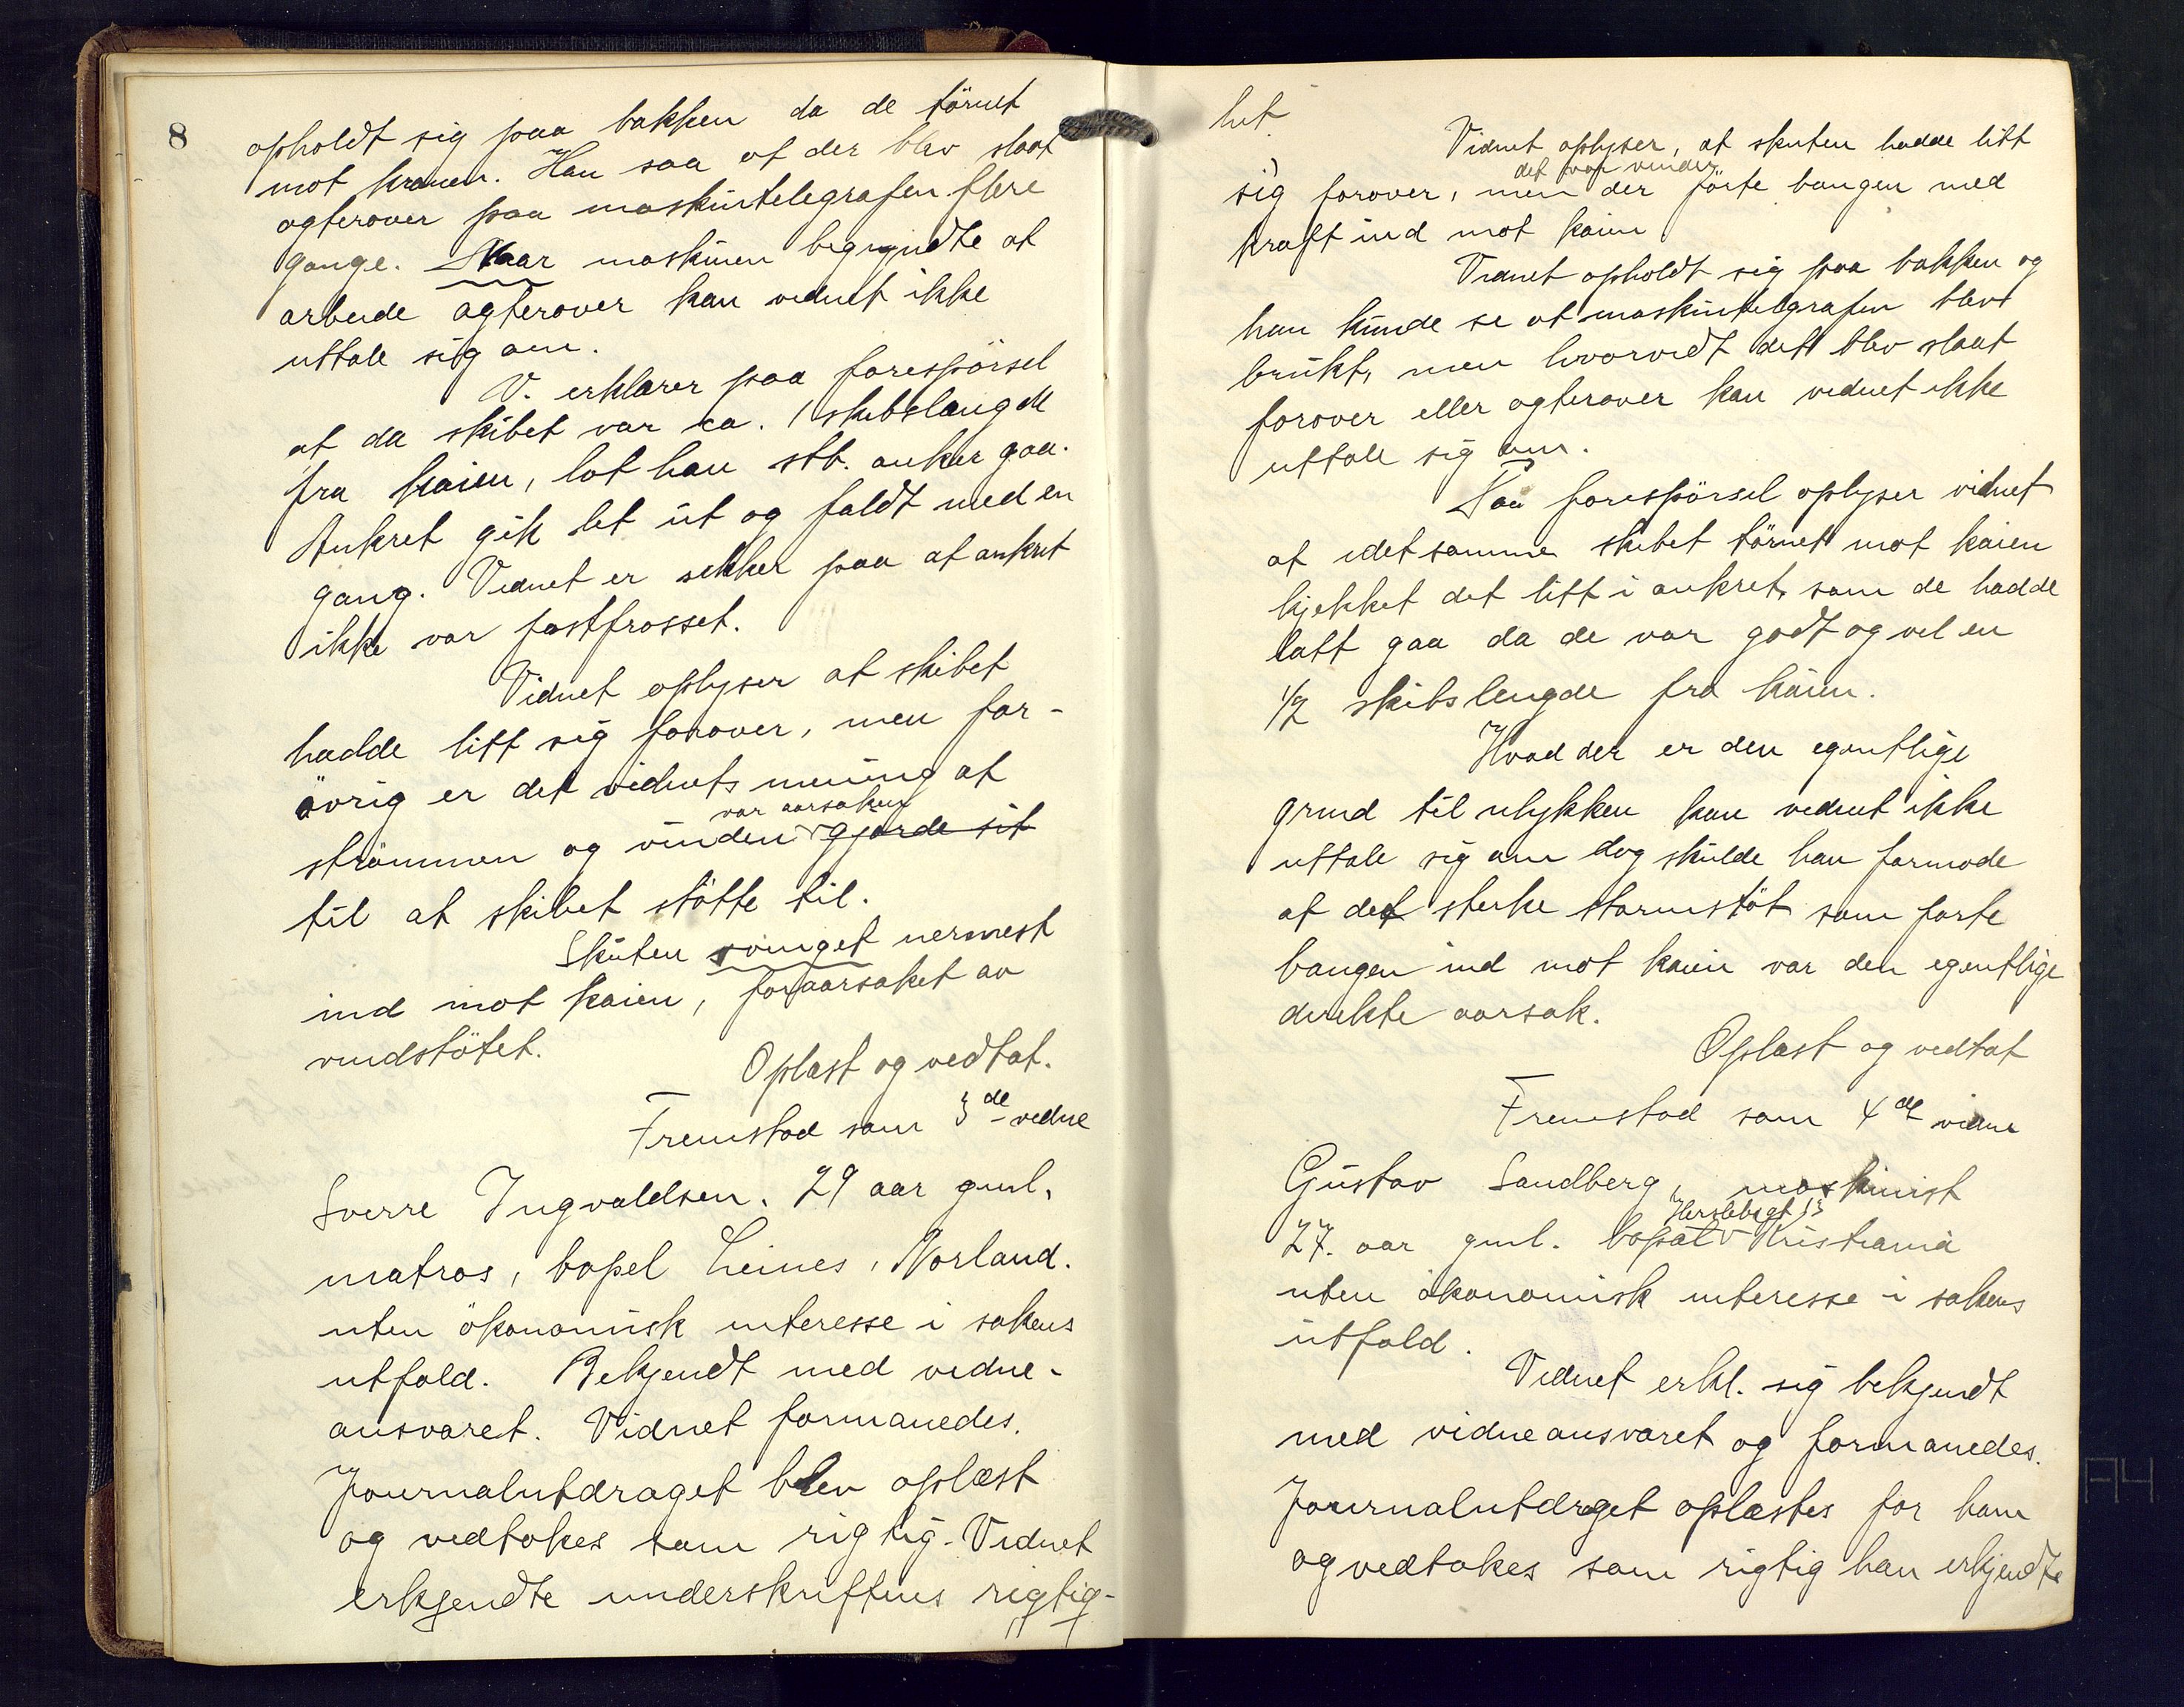 8
opholdt sig paa bakken da de törnet
mot kranen. Han saa at der blev slaat
agterover paa maskintelegrafen flere
gange. Naar maskinen begyndte at
arbeide agterover kan vidnet ikke
uttale sig om.
V. erklærer paa forespörsel
at da skibet var ca. 1 skibslængde
fra kaien, lot han stb. anker gaa.
Ankret gik let ut og faldt med en
gang. Vidnet er sikker paa at ankret
ikke var fastfrosset.
Vidnet oplyser at skibet
hadde litt sig forover, men for-
övrig er det vidnets mening at
var aarsaken
strömmen og vinden gjorde sit
til at skibet stötte til.
Skuten svinget nermest
ind mot kaien, foraarsaket av
vindstötet.
Oplæst og vedtat.
Fremstod som 3de vidne
Sverre Ingvaldsen, 29 aar gml.
matros, bopel Leines, Norland.
uten ökonomisk interesse i sakens
utfald. Bekjendt med vidne-
ansvaret. Vidnet formanedes.
Journalutdraget blev oplæst
og vedtokes som rigtig. Vidnet
erkjendte underskriftens rigtig-
het.
Vidnet oplyser, at skuten hadde litt
det var vinden
sig forover, men der förte baugen med
kraft ind mot kaien
Vidnet opholdt sig paa bakken og
han kunde se at maskintelegrafen blev
brukt, men hvorvidt det blev slaat
forover eller agterover kan vidnet ikke
uttale sig om.
Paa forespörsel oplyser vidnet
at idetsamme skibet törnet mot kaien
kjekket det litt i ankret, som de hadde
latt gaa da de var godt og vel en
1/2 skibslengde fra kaien.
Hvad der er den egentlige
grund til ulykken kan vidnet ikke
uttale sig om dog skulde han formode
at det sterke stormstöt som förte
baugen ind mot kaien var den egentlige
direkte aarsak.
Oplæst og vedtat
Fremstod som 4de vidne
Gustav Sandberg, maskinist
Herslebsgt 13
27. aar gml. bopæl Kristiania
uten ökonomisk interesse i sakens
utfald.
Vidnet erkl. sig bekjendt
med vidneansvaret og formanedes.
Journalutdraget oplæstes for ham
og vedtokes som rigtig han erkjendte